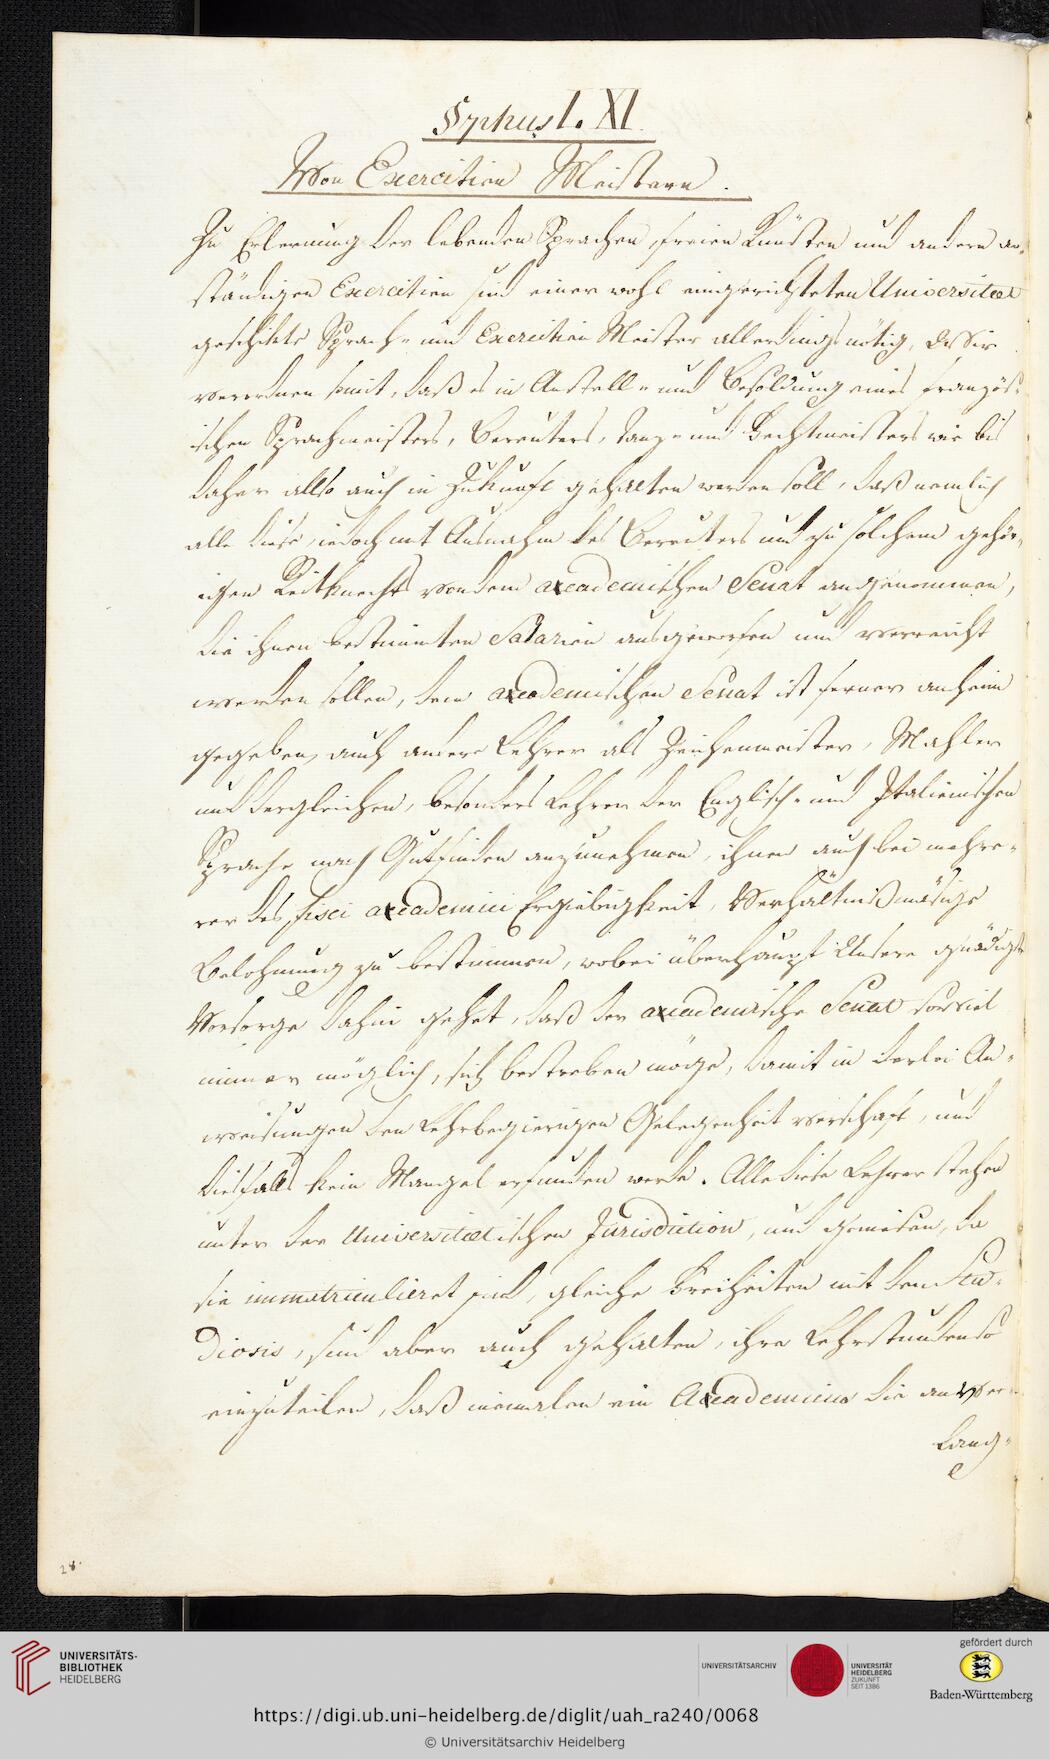 §phus L. XI.
Von Exercitien Meistern.
Zu Erlernung der lebenden Sprachen, freien Künsten und andern an-
ständigen Exercitien sind einer wohl eingerichteten Universitæt
geschikte Sprach- und Exercitien Meister allerdings nötig, Wir
verordnen somit, daß es in Anstell- und Besoldung eines französ-
ischen Sprachmeisters, Bereuters, Tanz- und Fechtmeisters wie bis
daher allso auch in Zukunft gehalten werden soll, daß nemlich
alle diese, iedoch mit Ausnahm des Bereiters und zu solchem gehör-
igen Reitknechts von dem academischen Senat angenommen,
die ihnen bestimmten Salarien ausgeworfen und verreicht
werden sollen, dem academischen Senat ist ferner anheim
gegeben, auch andere Lehrer als Zeichenmeister, Mahler
und dergleichen, besonders Lehrer der Englisch- und Italienischen
Sprache nach Gutfinden anzunehmen, ihnen auch bei mehre-
rer des fisci academici Ergiebigkeit, Verhältnißmäsige
Belohnung zu bestimmen, wobei überhaupt Unsere gnädigste
Vorsorge dahin gehet, daß der academische Senat soviel
immer möglich, sich bestreben möge, damit in derlei An-
weisungen den Lehrbegierigen Gelegenheit verschaft, und
diesfalls kein Mangel erfunden werde. Alle diese Lehrer stehen
unter der Universitætischen Jurisdiction, und geniesen, da
sie immatriculieret sind, gleiche Freiheiten mit den Stu-
diosis, sind aber auch gehalten, ihre Lehrstunden so
einzuteilen, daß niemalen ein Academicus die an ver-
lang-
28.
UNIVERSITÄTS-
BIBLIOTHEK
HEIDELBERG
UNIVERSITÄTSARCHIV
UNIVERSITÄT
HEIDELBERG
ZUKUNFT
SEIT 1386
gefördert durch
Baden-Württemberg
https://digi.ub.uni-heidelberg.de/diglit/uah_ra240/0068
© Universitätsarchiv Heidelberg